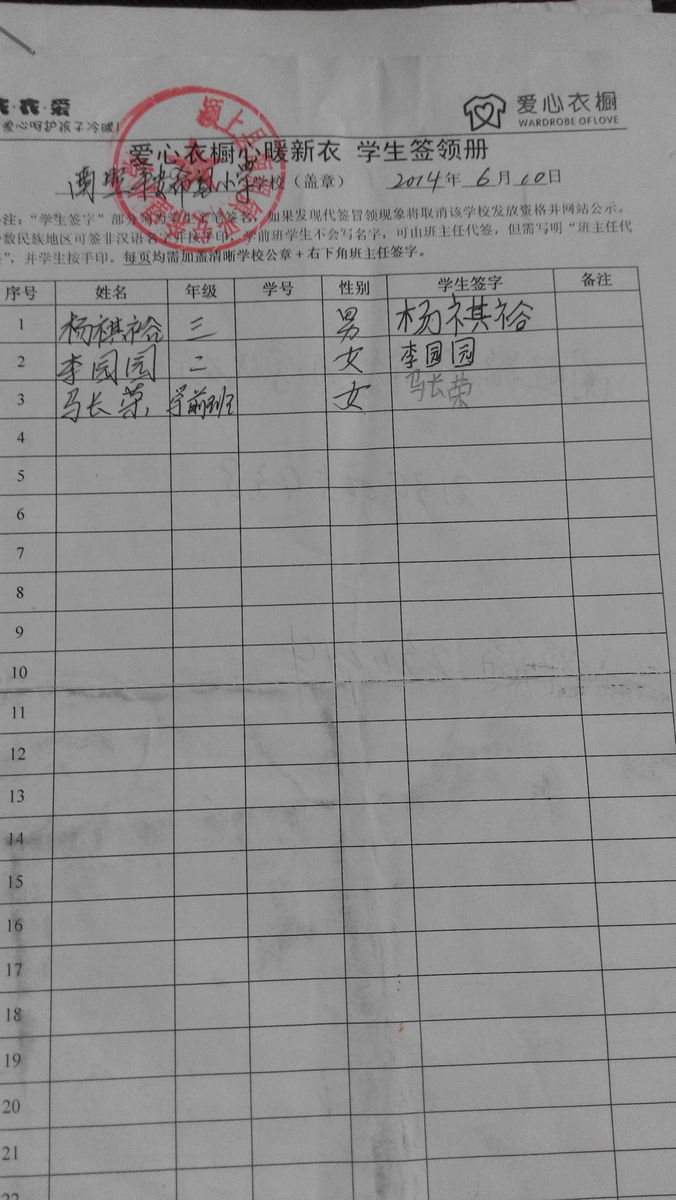 衣·衣·爱
爱心呵护孩子冷暖!
爱心衣橱
WARDROBE OF LOVE
爱心衣橱心暖新衣 学生签领册
小学学校（盖章） 2014年 6月10日
注：“学生签字”部分 如果发现代签冒领现象将取消该学校发放资格并网站公示。
数民族地区可签非汉语名字并按手印，学前班学生不会写名字，可由班主任代签，但需写明“班主任代
”，并学生按手印。每页均需加盖清晰学校公章+右下角班主任签字。
序号 姓名 年级 学号 性别 学生签字 备注
1 杨祺裕 三 男 杨祺裕
2 李园园 二 女 李园园
3 马长荣 学前班 女 马长荣
4
5
6
7
8
9
10
11
12
13
14
15
16
17
18
19
20
21
22